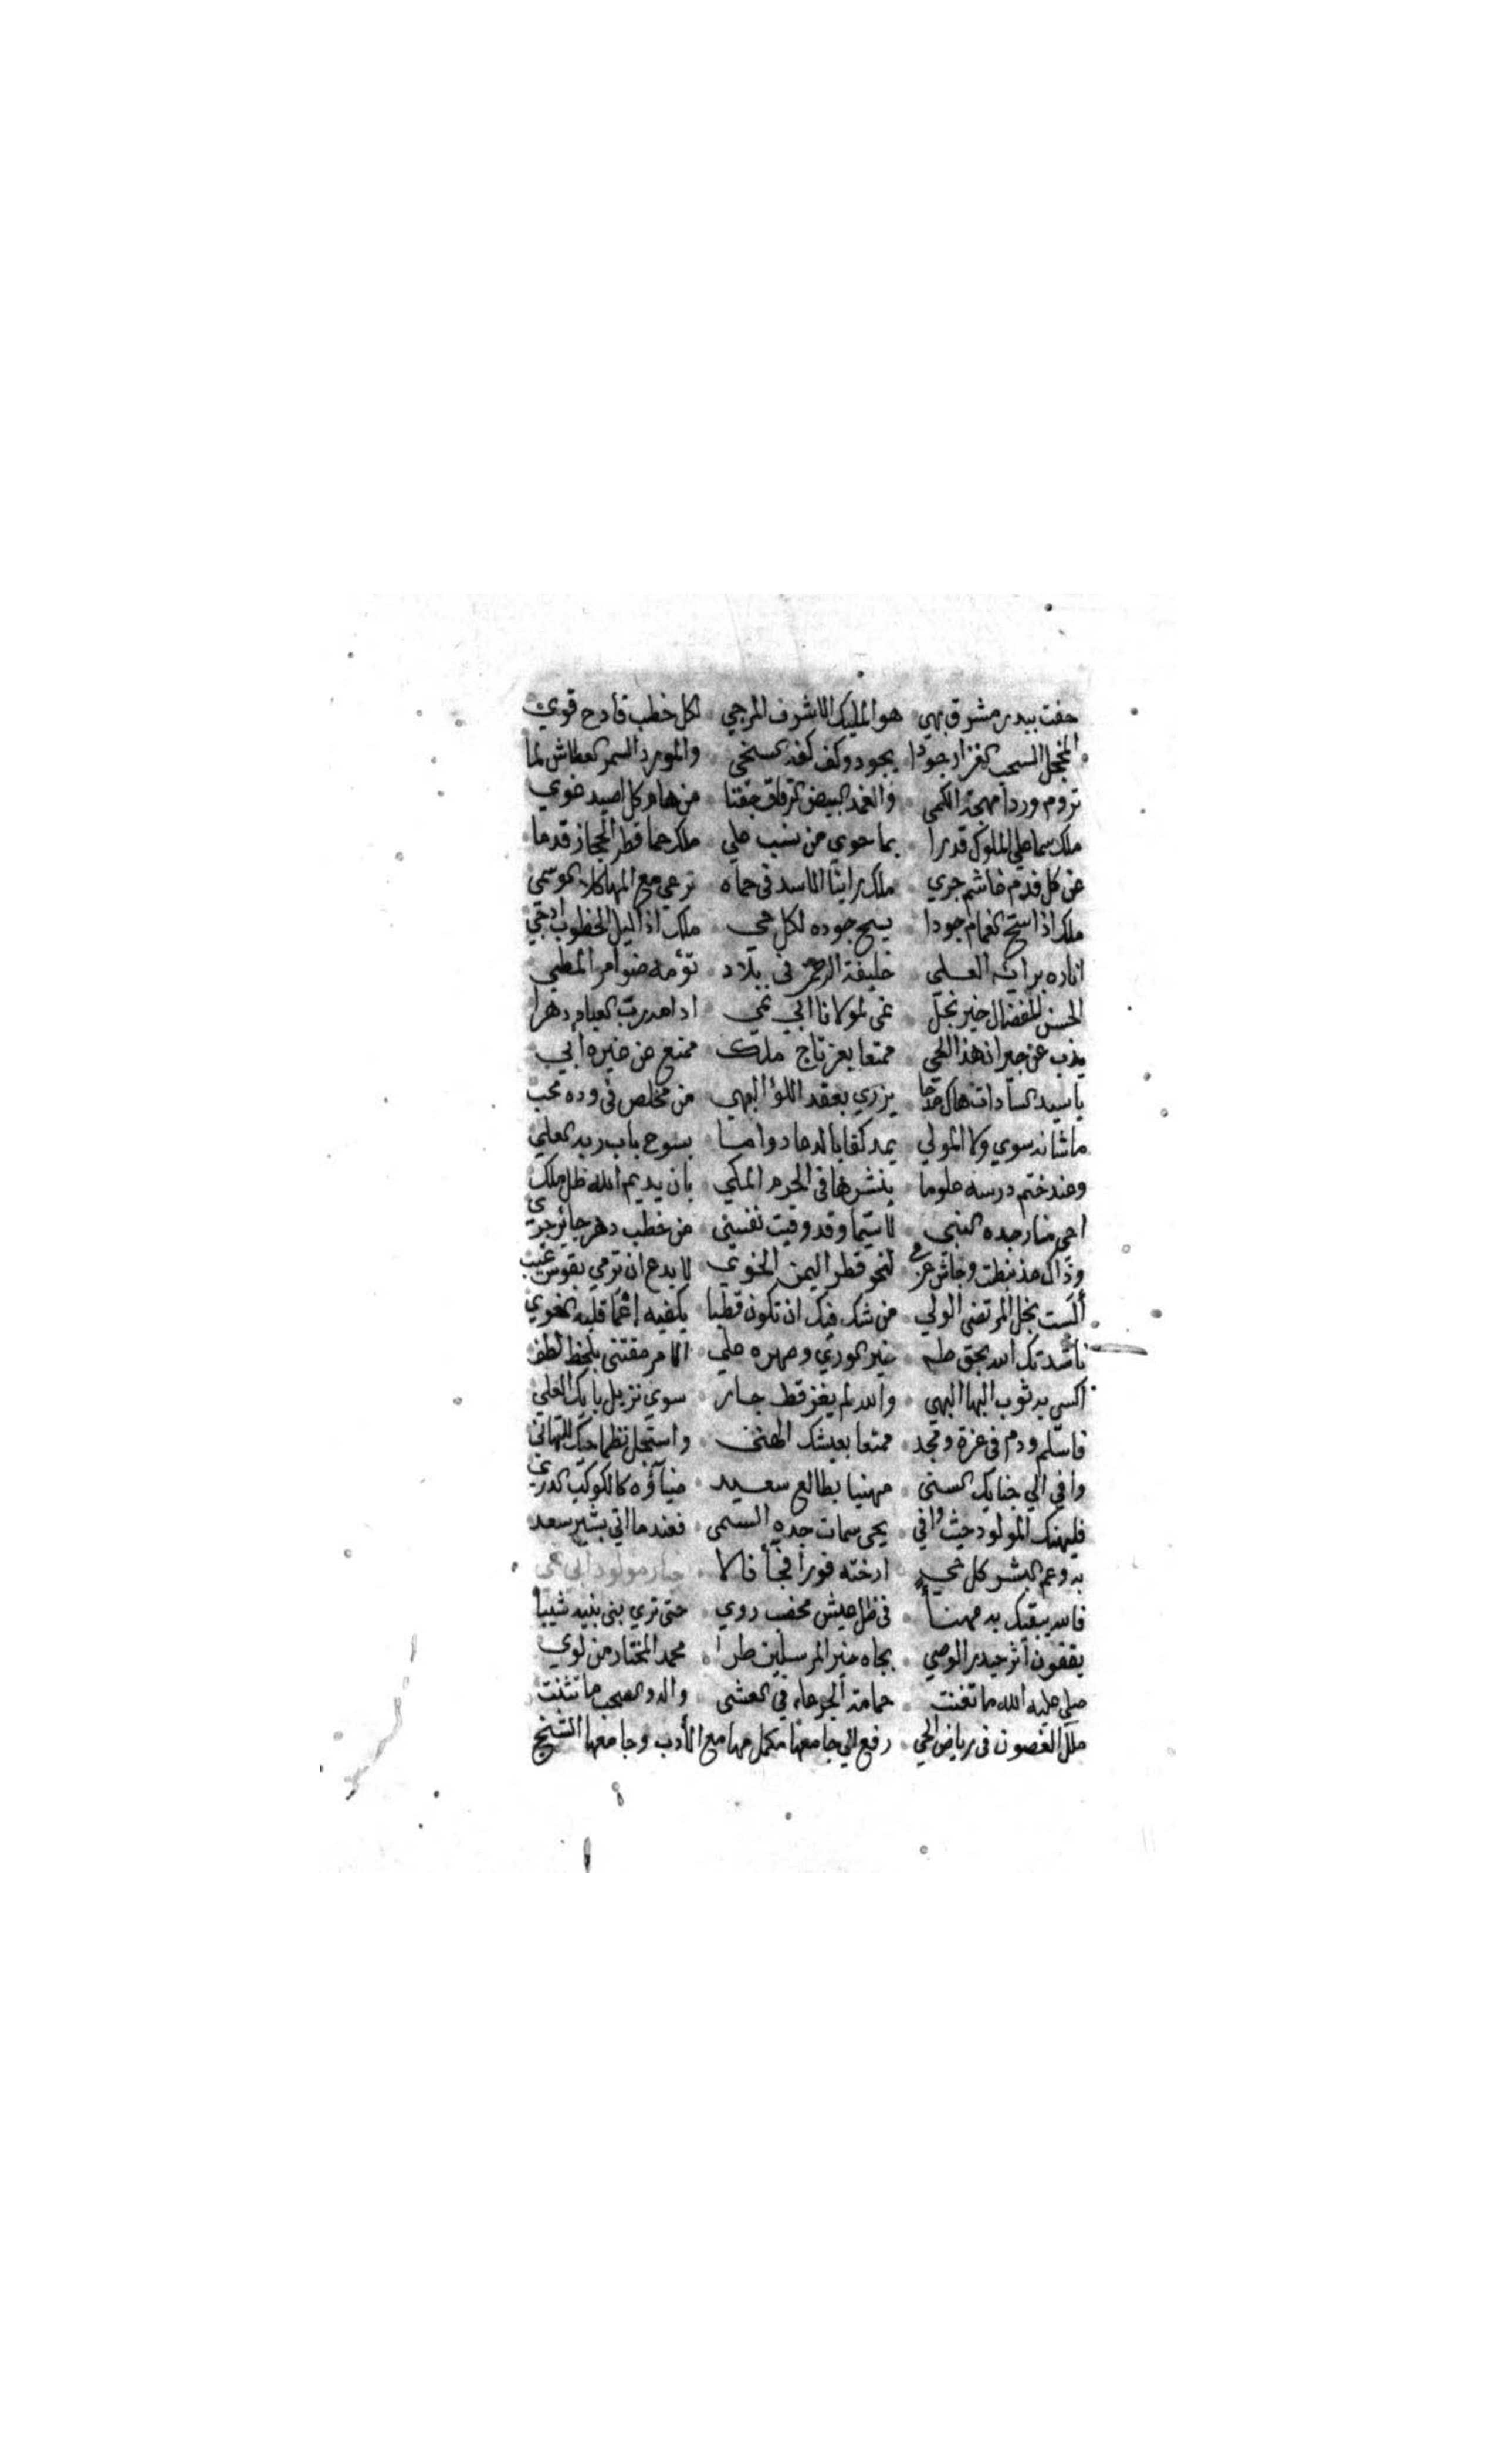 حفت ببدر مشرق بهي هو المليك الاشرف المرجي لكل خطب فادح قوي
المخجل السحب الغزار جودا بجود وكف كفه السخي والمورد السمر العطاش لما
تروم وردا مهجة الكمي والغمد البيض الرقاق حقنا من هام كل اصيد غوي
ملك سما على الملوك قدرا بما حوي من نسب علي ملك حما قطر الحجاز قدما
عن كل فدم غاشم جري ملك راينا الاسد في حماه ترعي مع المها كلا الوسمي
ملك اذا استح الغمام جودا يسح جوده لكل حي ملك اذا ليل الخطوب ادجي
اناره برايه العلي خليفة الرحمن في بلاد تؤمه ضوامر المطي
الحسن المفضال خير نجل نمي لمولانا ابي نمي ادامه رب العباد دهرا
يذب عن جيران هذا الحي ممتعا بعز تاج ملك ممنع عن غيره أبي
يا سيد السادات هاك مدحا يزري بعقد اللؤلؤ البهي من مخلص في وده محب
ما شانه سوي ولا المولي يمد كفا بالدعا دواما بسوح باب ربه العلي
وعند ختم درسه علوما ينشرها في الحرم المكي بان يديم الله ظل ملك
احي منار جده النبي لا سيما وقد وقيت نفسي من خطب دهر جاير جري
وذاك مذ نبطت وجاش عزمي لنحو قطر اليمن الخوي لا بدع ان ترمي بقوس غيب
ألست نجل المرتضي الولي من شك فيك ان تكون قطبا يكفيه إثما قلبه الغوي
ناشدتك الله بحق طه خير الوري وصهره علي الا مر مقتني بلحظ لطف
اكسي به ثوب البها البهي والله لم يفز قط جار سوي نزيل بابك العلي
فاسلم ودم في عزة ومجد ممتعا بعيشك الهني واستجل نظما حيك للتهاني
وافي الي جنابك السني مهنيا بطالع سعيد ضياؤه كالكوكب الدري
فليهنك المولود حيث وافي يحي سمات جده السمي فعندما اتي بشير سعد
به وعم البشر كل حي ارخته فورا فجأ فالا مولود ابي نمي
فالله يبقيك به مهنأ في ظل عيش مخصب روي حتي تري بني بنيه شيبا
يقفون أثر حيدر الوصي بجاه خير المرسلين طرا محمد المختار من لوي
صلي عليه الله ما تغنت حمامة الجرعاء في العشي والال والصحب ما تثنت
ملد الغصون في رياض الحي رفع الي جامعها مكمل مهامع الأدب وجامعها الشيخ